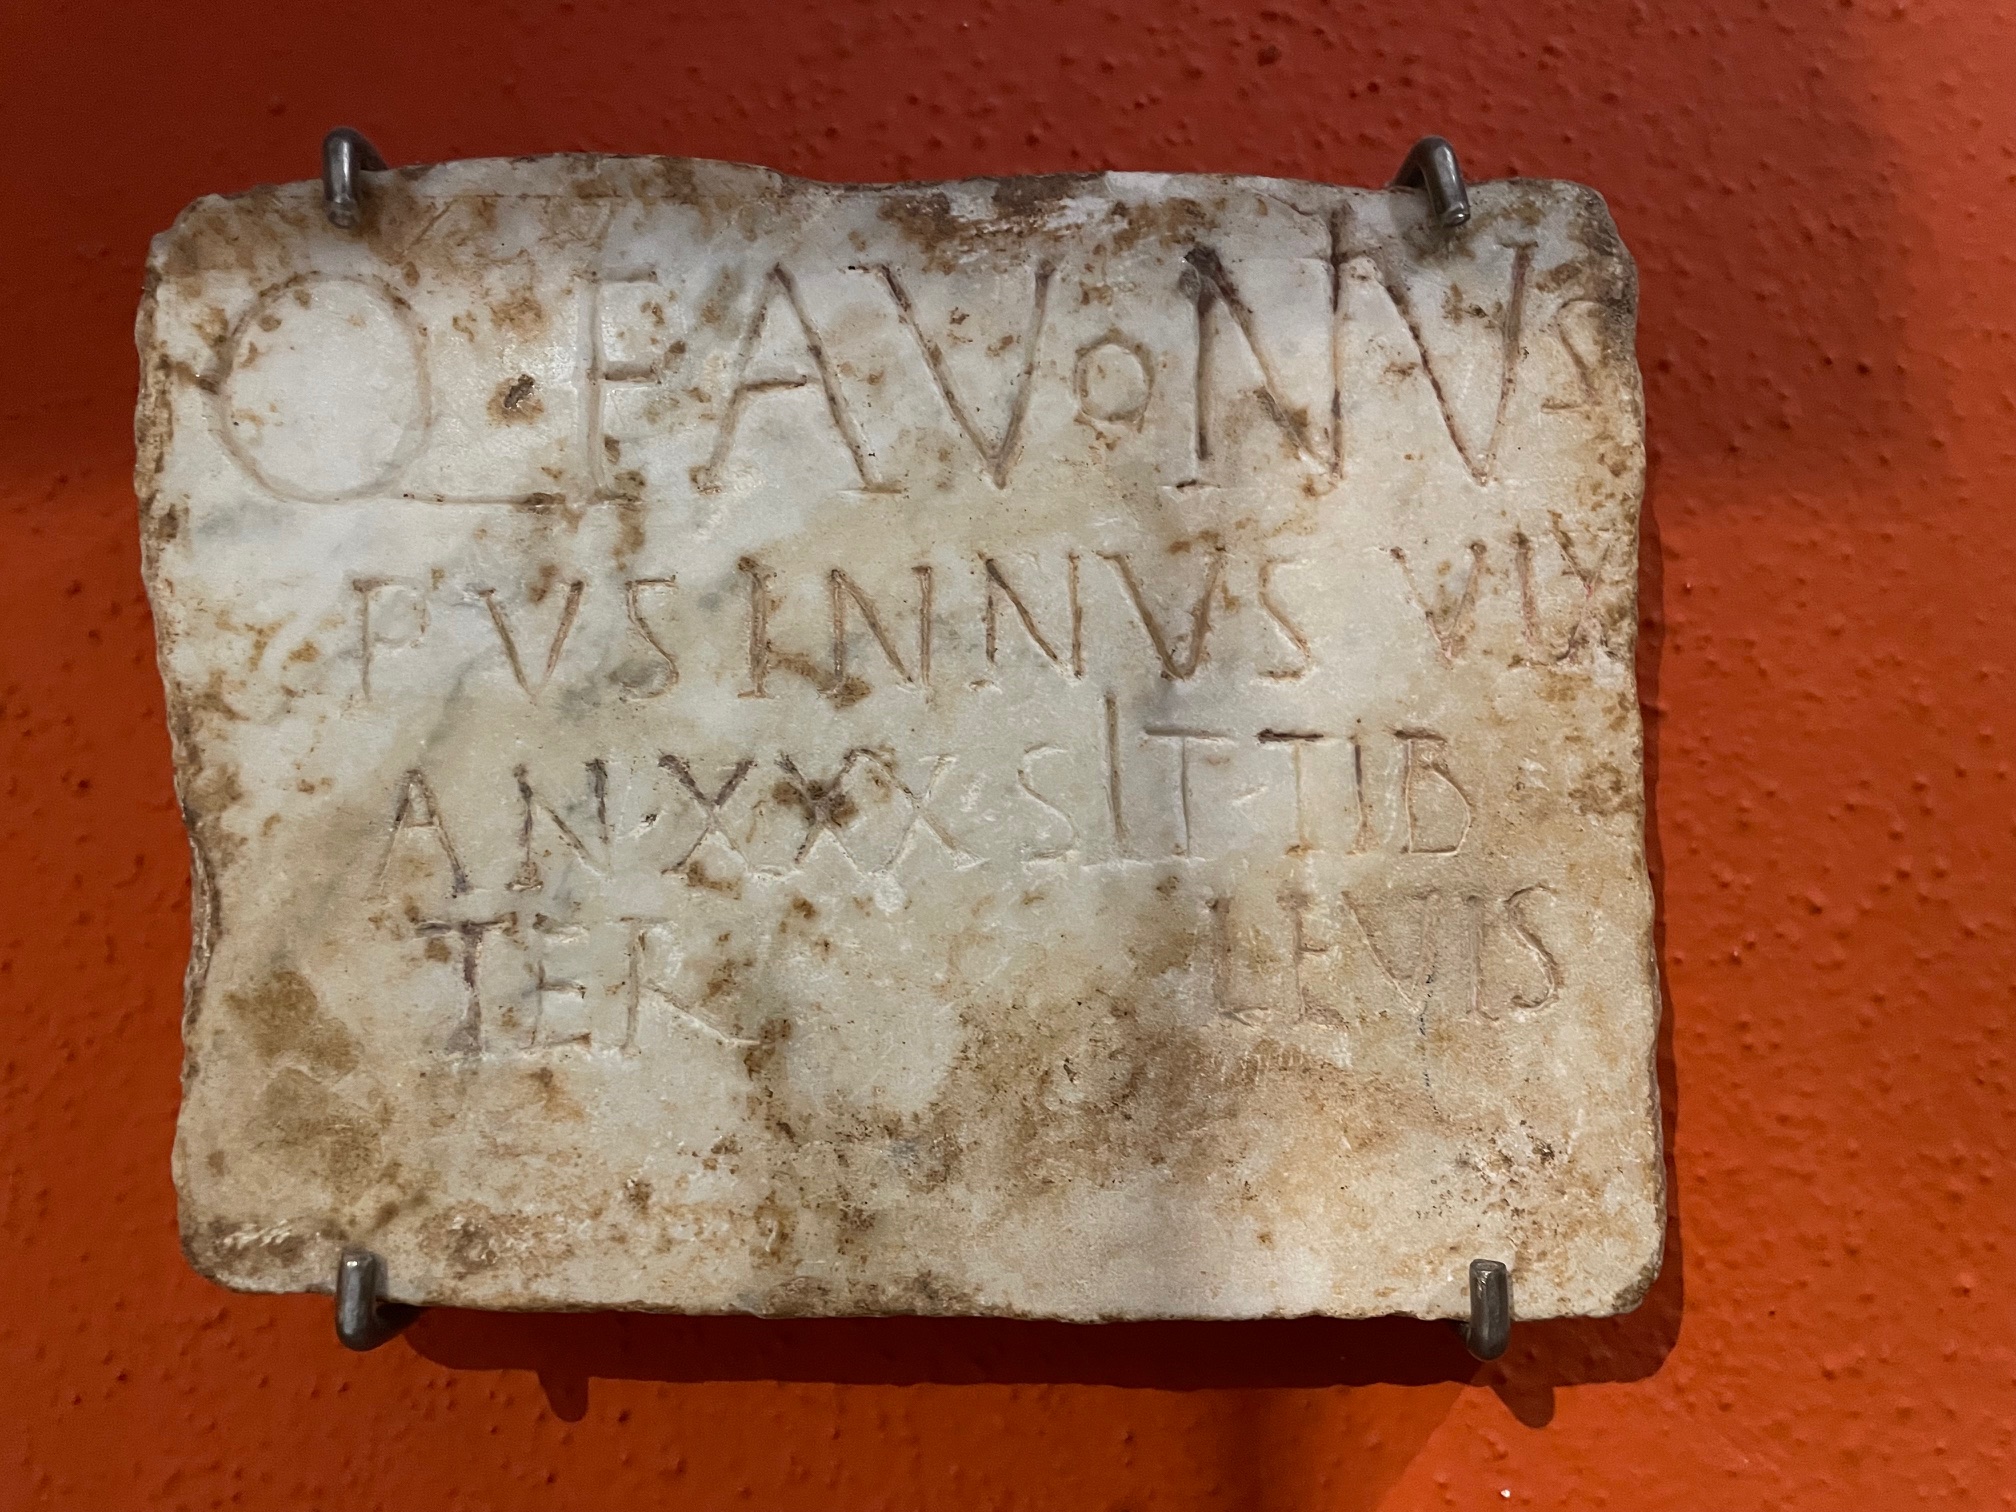 Q · FAVONIVS
PVSINNVS VIX
AN · XXX · SIT · TIB
TER LEVIS